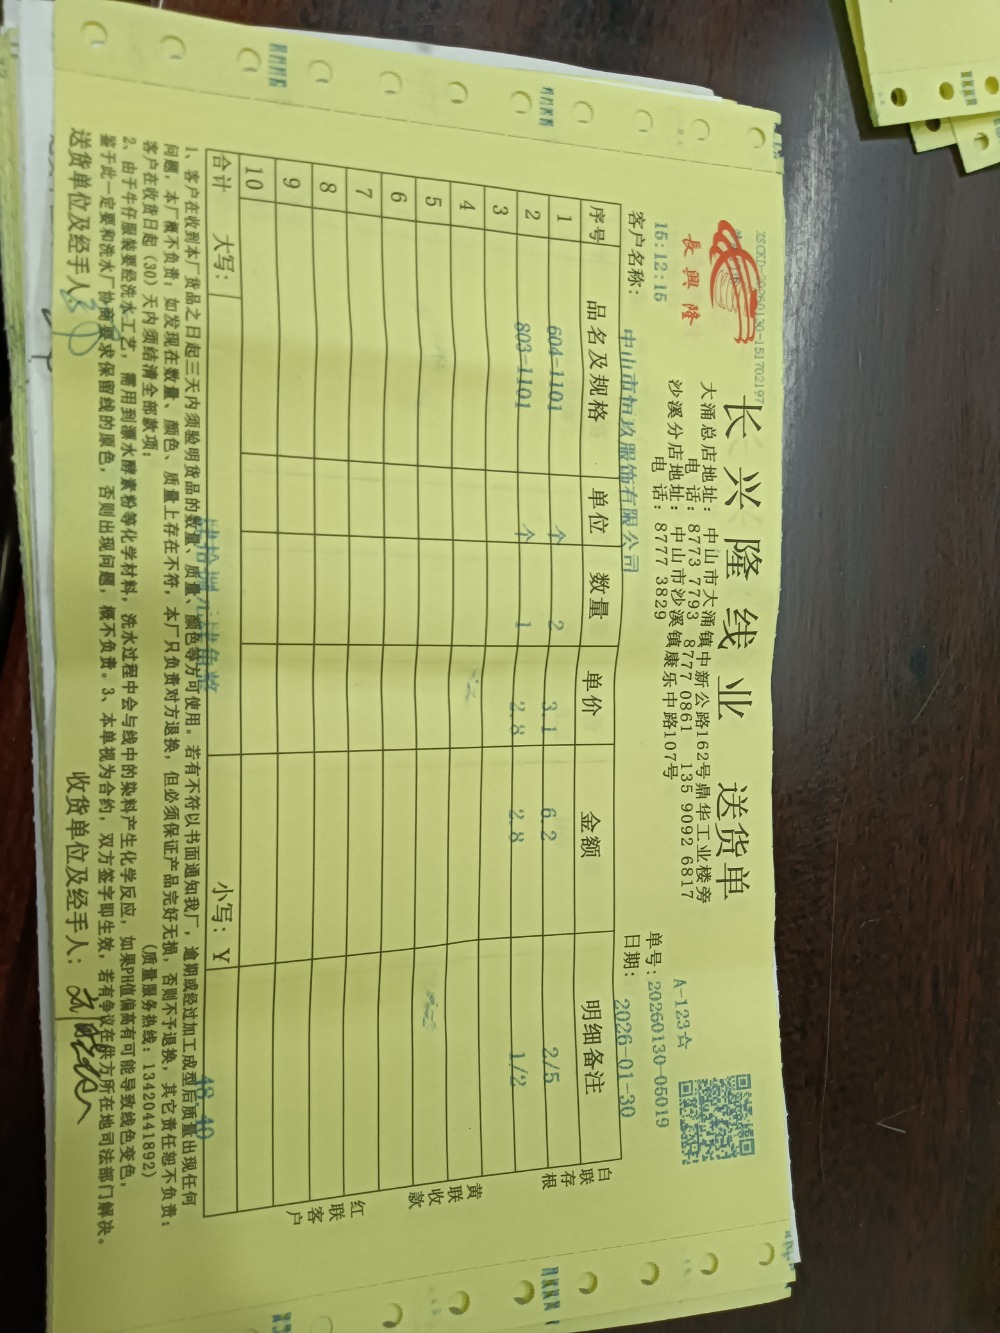 長興隆
长兴隆线业 送货单
大涌总店地址：中山市大涌镇中新公路162号鼎华工业楼旁
电 话：8773 7793 8777 0861 135 9092 6817
沙溪分店地址：中山市沙溪镇康乐中路107号
电 话：8777 3829
A-123☆
15:12:15
单号：20260130-05019
客户名称：中山市恒玖服饰有限公司
日期：2026-01-30
序号 品名及规格 单位 数量 单价 金额 明细备注
1 604-1101 个 2 3.1 6.2 2/5
2 803-1101 个 1 2.8 2.8 1/2
3
4
5
6
7
8
9
10
合计 大写： 小写：￥
白联存根
黄联收款
红联客户
1、客户在收到本厂货品之日起三天内须验明货品的数量、质量、颜色等方可使用。若有不符以书面通知我厂，逾期或经过加工成型后质量出现任何
问题，本厂概不负责；如发现在数量、颜色、质量上存在不符，本厂只负责对方退换，但必须保证产品完好无损，否则不予退换，其它责任恕不负责；
客户在收货日起（30）天内须结清全部款项； （质量服务热线：13420441892）
2、由于牛仔服装要经洗水工艺，需用到漂水酵素粉等化学材料，洗水过程中会与线中的染料产生化学反应，如果PH值偏高有可能导致线色变色，
鉴于此一定要和洗水厂协商要求保留线的原色，否则出现问题，概不负责。3、本单视为合约，双方签字即生效，若有争议在供方所在地司法部门解决。
送货单位及经手人： 收货单位及经手人：